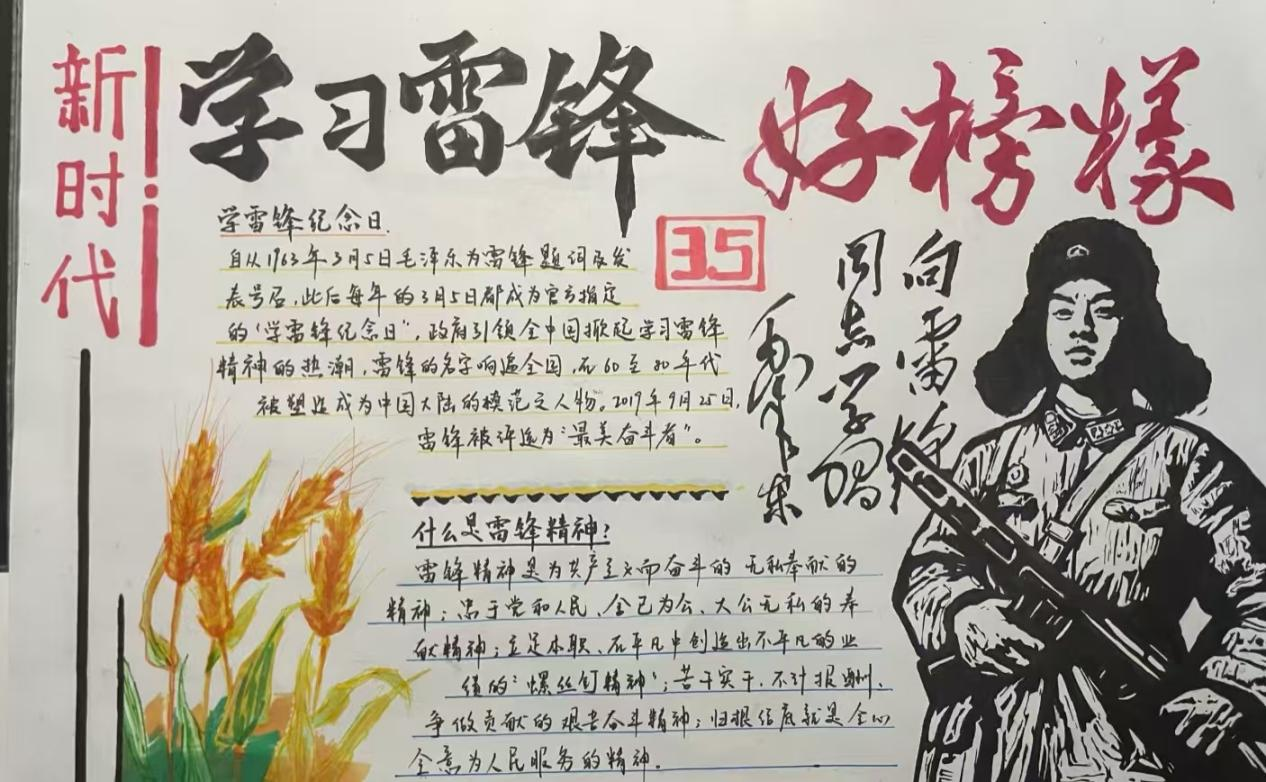 新时代
学习雷锋
好榜樣
学雷锋纪念日
自从1963年3月5日毛泽东为雷锋题词及发
表号召,此后每年的3月5日都成为官方指定
的"学雷锋纪念日",政府引领全中国掀起学习雷锋
精神的热潮,雷锋的名字响遍全国,在60至80年代
被塑造成为中国大陆的模范之人物。2019年9月25日,
雷锋被评选为"最美奋斗者"。
35
向雷锋
同志学習
毛泽东
什么是雷锋精神?
雷锋精神是为共产主义而奋斗的无私奉献的
精神;忠于党和人民、全己为公、大公无私的奉
献精神;立足本职、在平凡中创造出不平凡的业
绩的"螺丝钉精神";苦干实干、不计报酬、
争做贡献的艰苦奋斗精神;归根结底就是全心
全意为人民服务的精神。